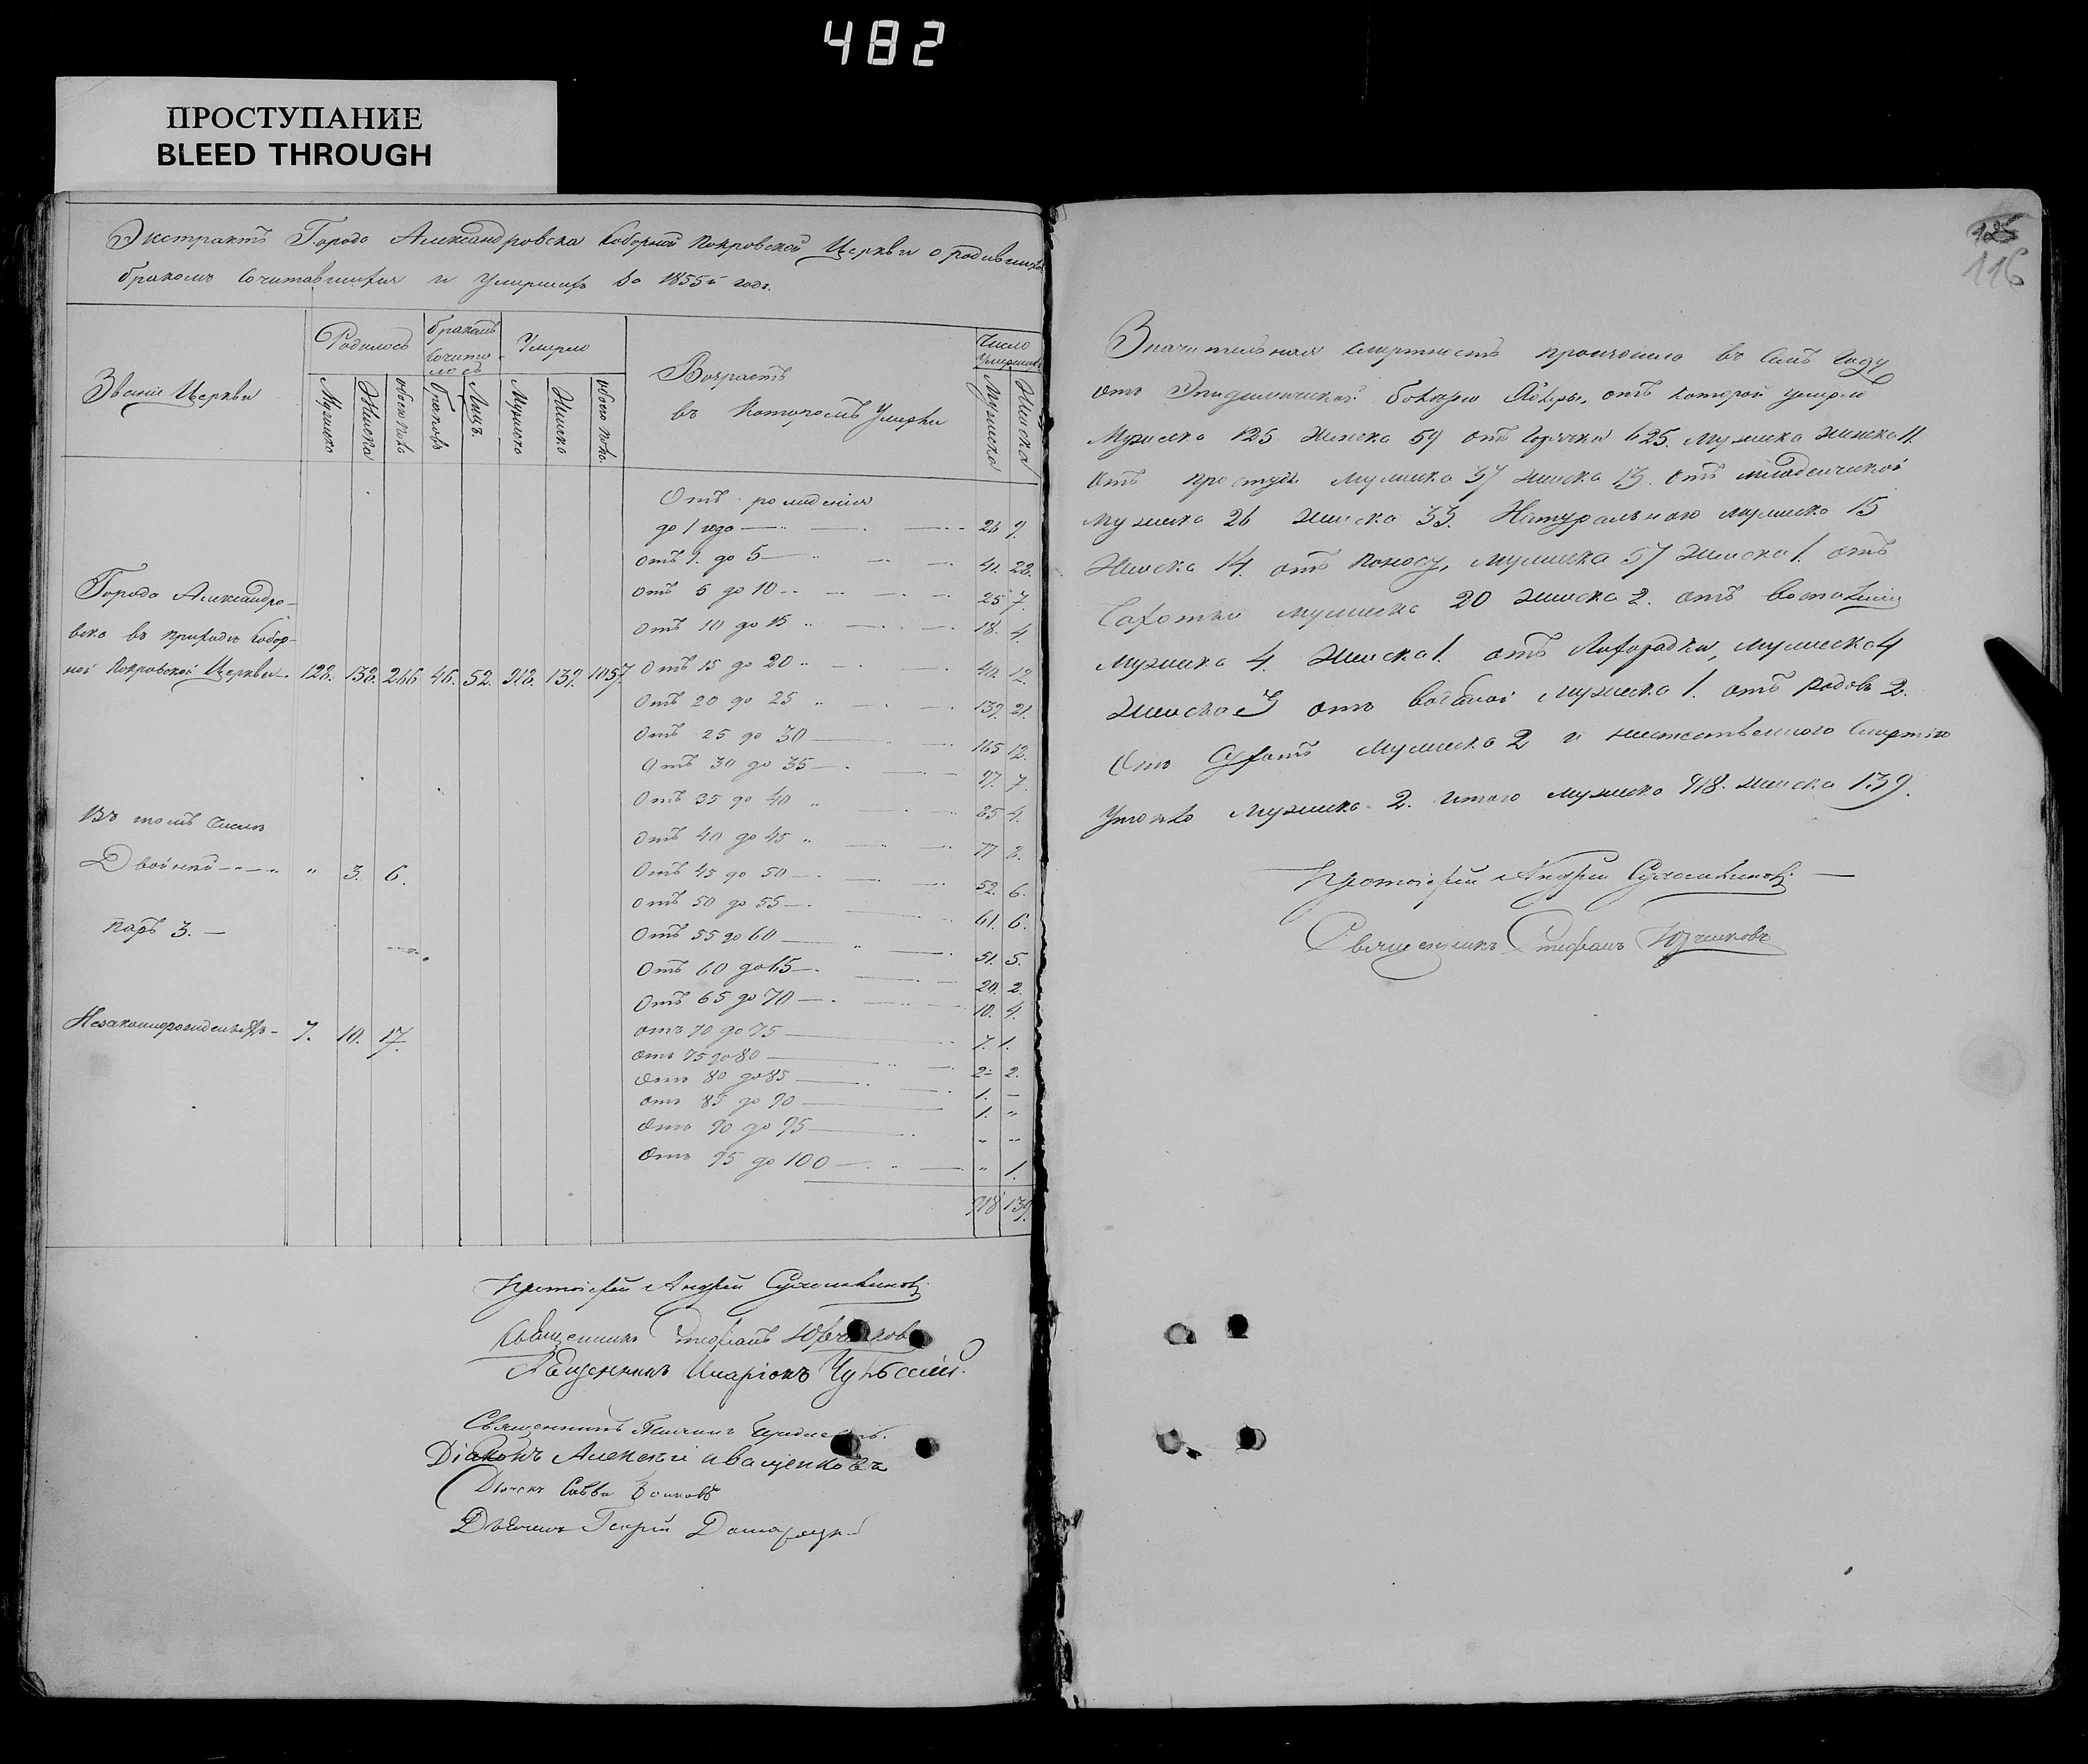 482
ПРОСТУПАНИЕ
BLEED THROUGH
Экстрактъ Города Александровска Соборной Покровской Церкви о родившихся
бракомъ Сочитавшихся и Умершихъ за 1855й годъ.
Званіе Церкви
Родилось
бракомъ Сочиталось
Умерло
Возрастъ
въ Которомъ Умерли
Число Умершихъ
Мужеска
Женска
обоего пола
браковъ
Лицъ.
Мужеска
Женска
обоего пола.
Мужеска
Женска
Отъ рожденія
до 1 года 26 9.
Отъ 1. до 5 41. 28.
Отъ 5 до 10 25 7.
Отъ 10 до 15 18. 4.
Отъ 15 до 20 40. 12.
Отъ 20 до 25 139. 21.
Отъ 25 до 30 165 12.
Отъ 30 до 35 97. 7.
Отъ 35 до 40 85 4.
Отъ 40 до 45 77 8.
Отъ 45 до 50 52. 6.
Отъ 50 до 55 61. 6.
Отъ 55 до 60 51. 5.
Отъ 60 до 65 20. 2.
Отъ 65 до 70 10. 4.
отъ 70 до 75 7. 1.
Отъ 75 до 80 2 2.
Отъ 80 до 85 1. –
отъ 85 до 90 1. "
Отъ 90 до 95 " "
Отъ 95 до 100 " 1.
918 139.
Города Александро-
вска въ приходѣ Собор-
ной Покровской Церкви. 128. 138. 266 46. 52. 918. 139. 1057.
Въ томъ Числѣ
Двойней " 3. 6.
паръ 3. –
Незаконнорожденныхъ 7. 10. 17.
Протоіерей Андрей
Священникъ Стефанъ Юрченковъ
Священникъ Иларіонъ
Священникъ
Діаконъ Алексѣй Иващенковъ
Дьячекъ Савва
Дьячекъ Георгій
125
116
Значительная Смертность произошла въ Семъ Году
отъ Эпидемической болѣзни Холеры, отъ которой умерло
Мужеска 125 Женска 59 отъ Горячки 625. Мужеска Женска 11.
Отъ простуды Мужеска 37 женска 13. Отъ младенческой
Мужеска 26 Женска 33. Натуральною мужеска 15
Женска 14. отъ Поносу, мужеска 57 Женска 1. отъ
Чахотки мужеска 20 женска 2. отъ воспаленія
Мужеска 4. Женска 1. отъ Лихорадки, мужеска 4
Женска 3 отъ водяной мужеска 1. отъ Родовъ 2.
Отъ мужеска 2 и неестественною Смертію
Утопло Мужеска 2. Итого мужеска 918. женска 139.
Протоіерей Андрей
Священникъ Стефанъ Юрченковъ